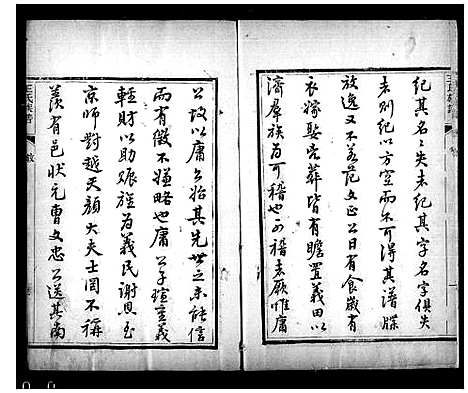 紀其名名失者紀其字名字俱失
者則紀以方空而不可得其譜牒
放逸又不若范文正公日有食歲有
衣嫁娶喪葬皆有贍置義田以
濟群族為可稽也可稽者厥惟庸
公故以庸公始其先世之未能信
而有徵不嫌略也庸公子瑄重義
輕財以助賑族為義民謝恩至
京師對越天顏大夫士罔不稱
羨有邑狀元曹文忠公送其南
王氏族譜